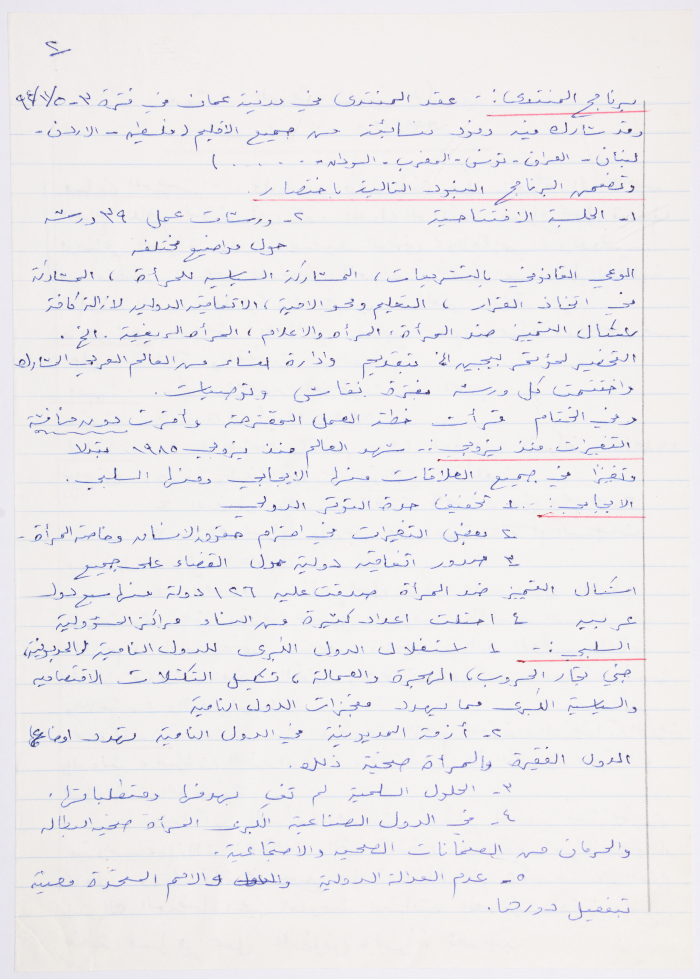 ٢
برنامج المنتدى :- عقد المنتدى في مدينة عمان في فترة ٣-٩٤/١١/٥
وقد شارك فيه وفود نسائية من جميع الاقليم (فلسطين - الاردن -
لبنان - العراق - تونس - المغرب - السودان - . . . . . )
وتضمن البرنامج البنود التالية باختصار .
١- الجلسة الافتتاحية ٢- ورشات عمل ٣٩ ورشة
حول مواضيع مختلفه
الوعي القانوني بالتشريعات ، المشاركة السياسيه للمرأة ، المشاركة
في اتخاذ القرار ، التعليم ومحو الامية ، الاتفاقية الدوليه لازالة كافة
اشكال التمييز ضد المرأة ، المرأه والاعلام ، المرأه الريفية . الخ .
التحضير لمؤتمر بيجين بتقديم وادارة نساء من العالم العربي المشارك
واختتمت كل ورشه بفترة نقاش وتوصيات .
وفي الختام قرأت خطة العمل المقترحة وأقرت دون مناقشة
التغيرات منذ نيروبي :- شهد العالم منذ نيروبي ١٩٨٥ تبدلا
وتغيرا في جميع العلاقات منها الايجابي ومنها السلبي .
الايجابي :- ١- تخفيف حدة التوتر الدولي
٢ بعض التغيرات في احترام حقوق الانسان وخاصة المرأة -
٣ صدور اتفاقيه دولية حول القضاء على جميع
اشكال التمييز ضد المرأة صدقت عليه ١٢٦ دولة منها سبع دول
عربيه ٤ احتلت اعداد كثيرة من النساء مراكز المسؤولية
السلبي :- ١ استغلال الدول الكبرى للدول النامية (المديونية،
جني تجار الحروب ، الهجرة والعمالة ، تشكيل التكتلات الاقتصاديه
والسياسية الكبرى مما يهدد منجزات الدول النامية
٢- أزمة المديونية في الدول النامية تهدد اوضاع
الدول الفقيرة والمرأة ضحية ذلك .
٣- الحلول السلمية لم تفِ بهدفها ومتطلباتها .
٤- في الدول الصناعية الكبرى المرأة ضحية البطاله
والحرمان من الضمانات الصحيه والاجتماعية .
٥- عدم العدالة الدولية والامم المتحدة معنية
بتفعيل دورها .